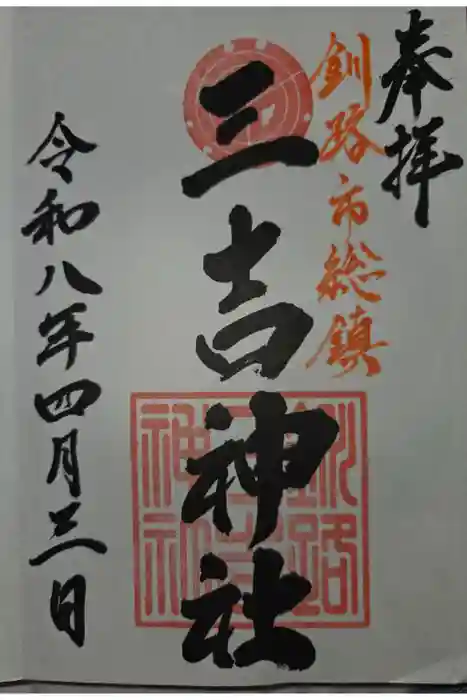 奉拝
釧路市総鎮
三吉神社
令和八年四月三日
釧路
三吉
神社